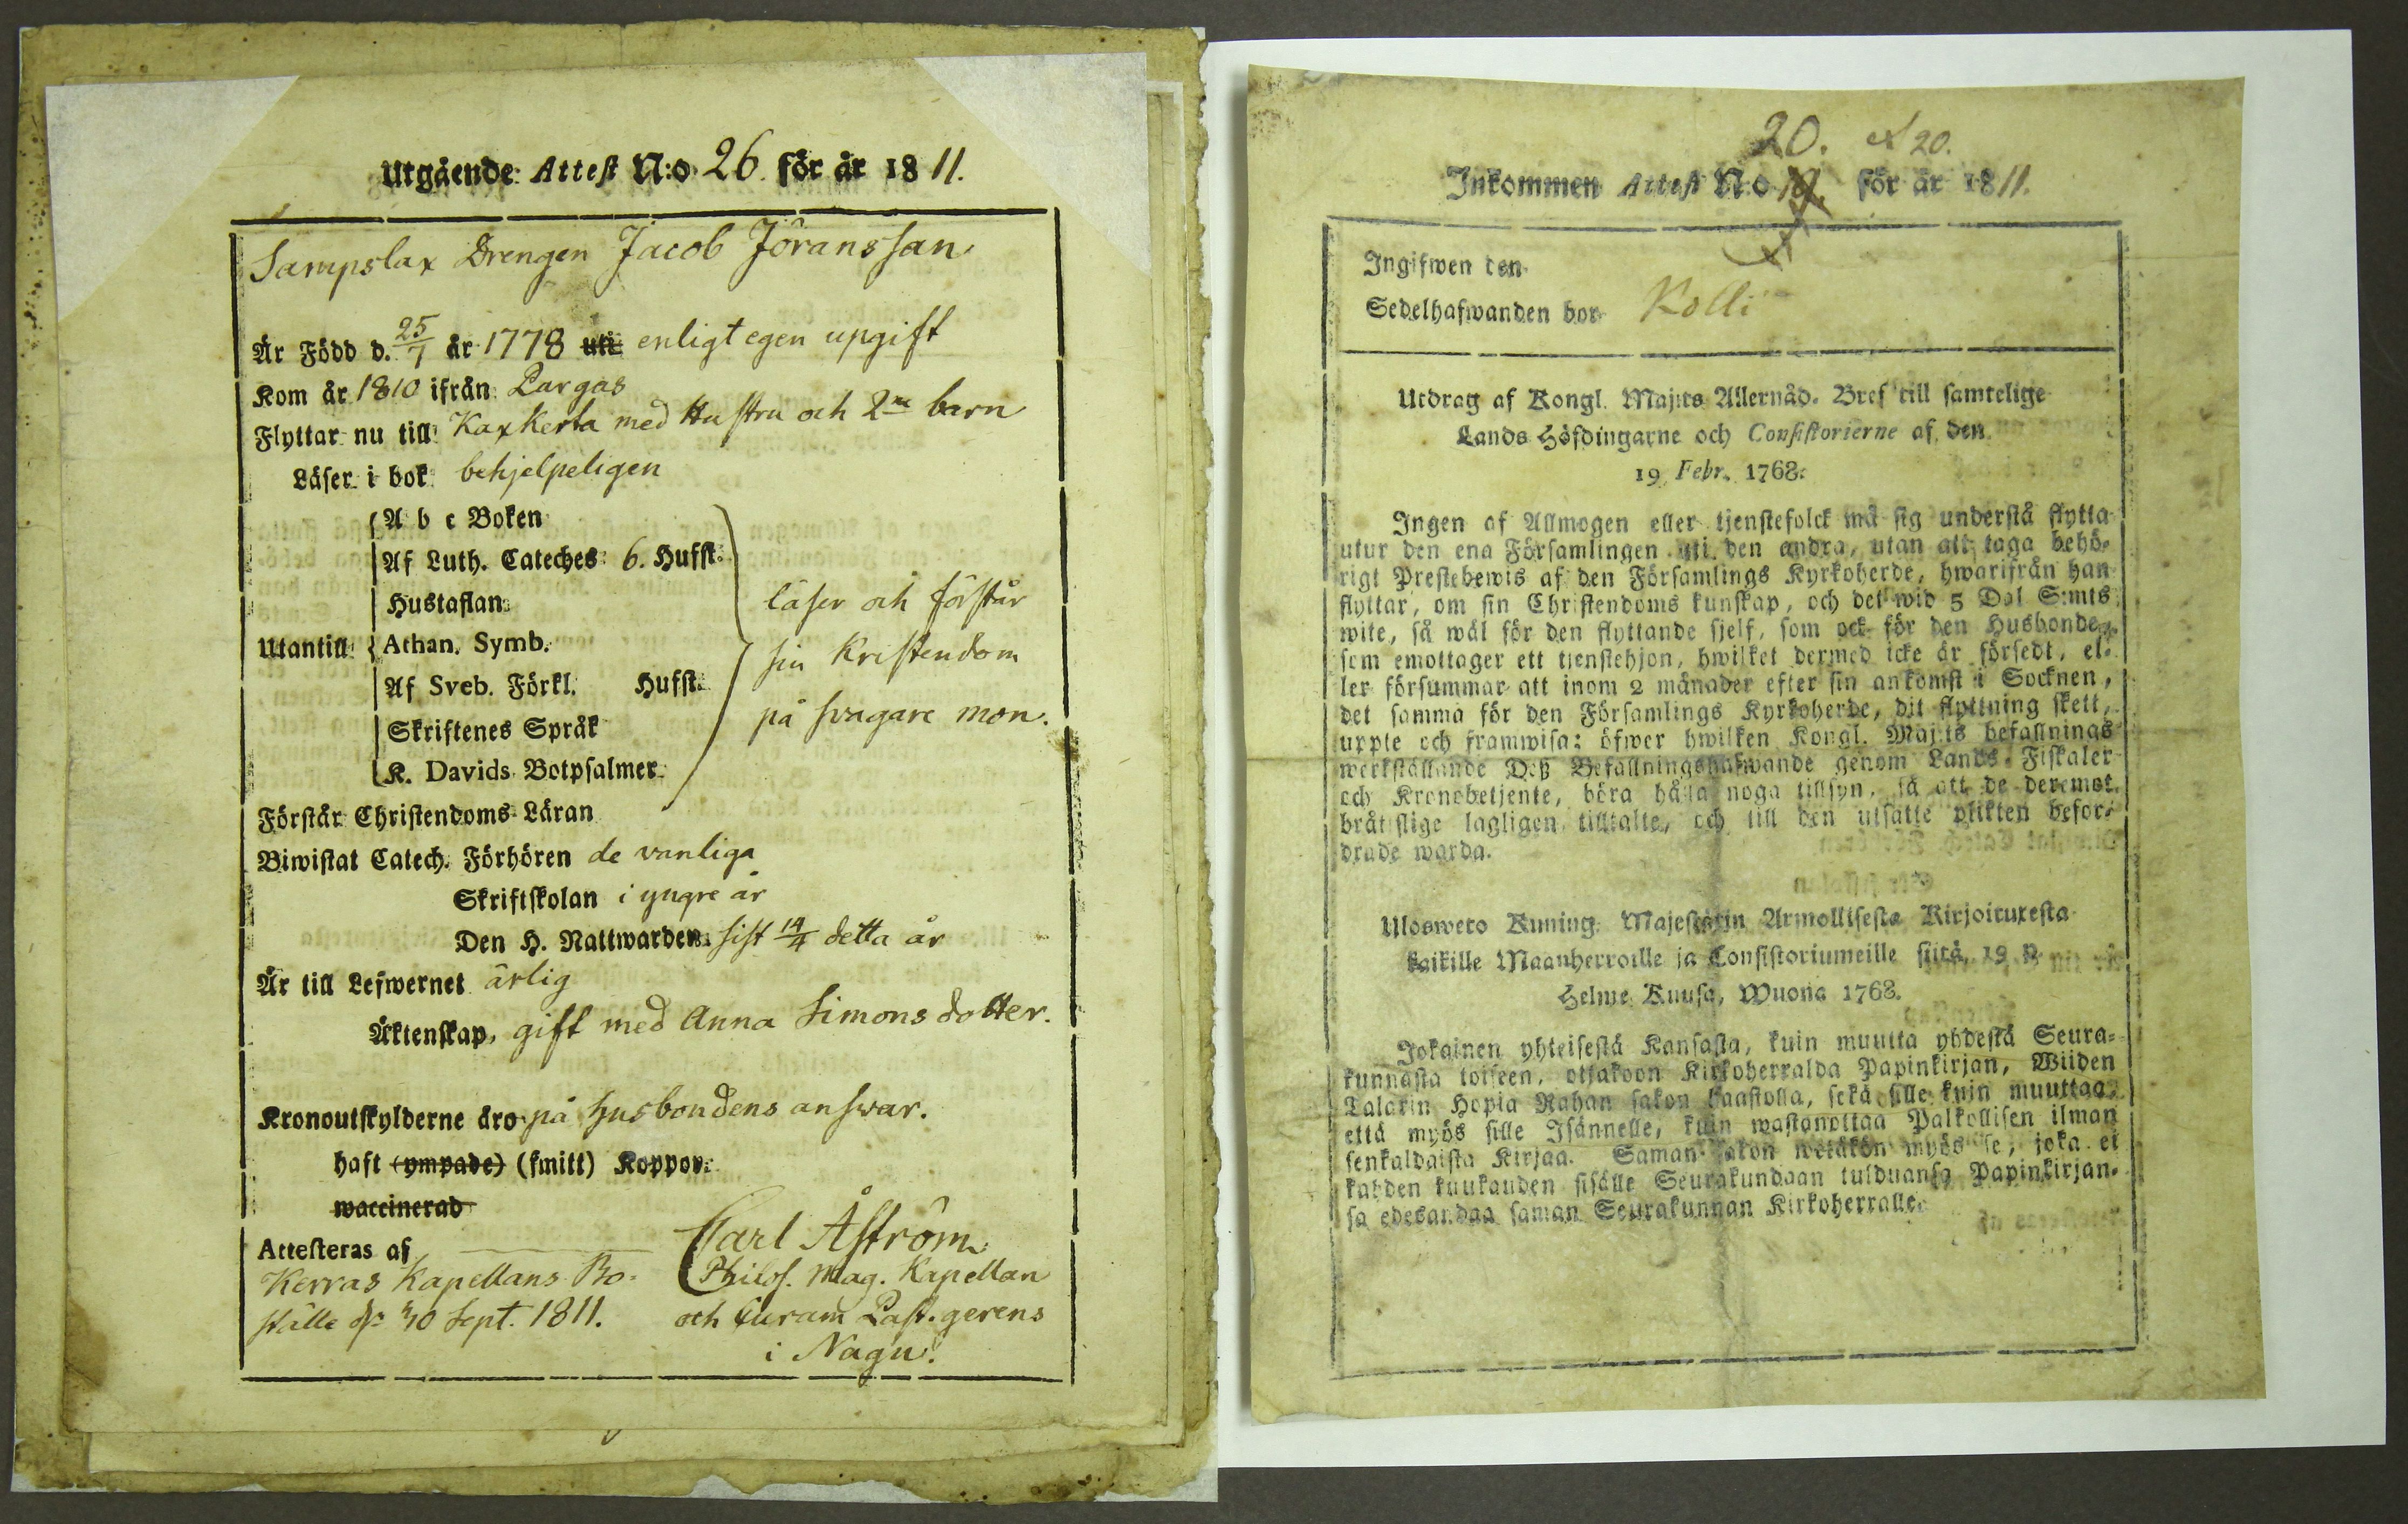 Utgående Attest N:o 26. för år 1811.
Sampslax Drengen Jacob Jöransson
Är Född d. 25/7 år 1778 uti enligt egen upgift
Kom år 1810 ifrån Pargas
Flyttar nu till Kaxkerta med Hustru och 2ne barn
Läser i bok behjelpeligen
A b c Boken
Af Luth. Cateches 6. Hufst.
Hustaflan
Utantill Athan. Symb.
Af Sveb. Förkl. Hufst.
Skriftenes Språk
K. Davids Botpsalmer
läser och förstår
sin Kristendom
på svagare mon.
Förstår Christendoms Läran
Biwistat Catech. Förhören de vanliga
Skriftskolan i yngre år
Den H. Nattwarden sist 14/4 detta år
Är till Lefwernet ärlig
Äktenskap, gift med Anna Simons dotter.
Kronoutskylderne äro på husbondens answar.
haft (ympade) (smitt) Koppor
waccinerad
Attesteras af
Kerras Kapellans Bo-
ställe d. 30 Sept. 1811.
Carl Åström
Philos. Mag. Kapellan
och Curam Past. gerens
i Nagu.
20. 20.
Inkommen Attest N:o för år 1811.
Ingifwen den
Sedelhafwanden bor Kolli
Utdrag af Kongl. Maj:ts Allernåd. Bref till samtelige
Lands Höfdingarne och Consistorierne af den
19 Febr. 1768.
Ingen af Allmogen eller tjenstefolck må sig understå flytta
utur den ena Församlingen uti den andra, utan att taga behö-
rigt Prestebewis af den Församlings Kyrkoherde, hwarifrån han
flyttar, om sin Christendoms kunskap, och det wid 5 Dal S:mts
wite, så wäl för den flyttande sjelf, som ock för den Husbonde,
som emottager ett tjenstehjon, hwilket dermed icke är försedt, el-
ler försummar att inom 2 månader efter sin ankomst i Socknen,
det samma för den Församlings Kyrkoherde, dit flyttning skett,
uppte och framwisa: öfwer hwilken Kongl. Maj:ts befallnings
werkställande Deß Befallningshafwande genom Lands-Fiskaler
och Kronobetjente, böra hålla noga tillsyn, så att de deremot
bråtslige lagligen tilltalte, och till den utsatte plikten befor-
drade warda.
Ulosweto Kuning. Majestetin Armollisesta Kirjoituxesta
kaikille Maanherroille ja Consistoriumeille siitä, 19 p.
Helme Kuusa, Wuona 1768.
Jokainen yhteisestä Kansasta, kuin muutta yhdestä Seura-
kunnasta toiseen, ottakoon Kirkoherralda Papinkirjan, Wiiden
Talarin Hopia Rahan sakon haastolla, sekä sille kuin muuttaa,
että myös sille Isännelle, kuin wastanottaa Palkollisen ilman
senkaldaista Kirjaa. Saman sakon wetäkön myös se, joka ei
kahden kuukauden sisälle Seurakundaan tulduansa Papinkirjan-
sa edesandaa saman Seurakunnan Kirkoherralle.